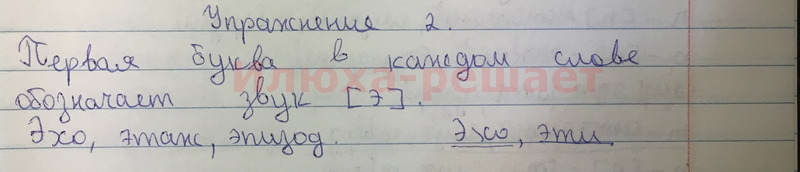 Упражнение 2.
Первая буква в каждом слове
Илюха-решает
обозначает звук [э].
Эхо, этаж, эпизод. Эхо, эти.